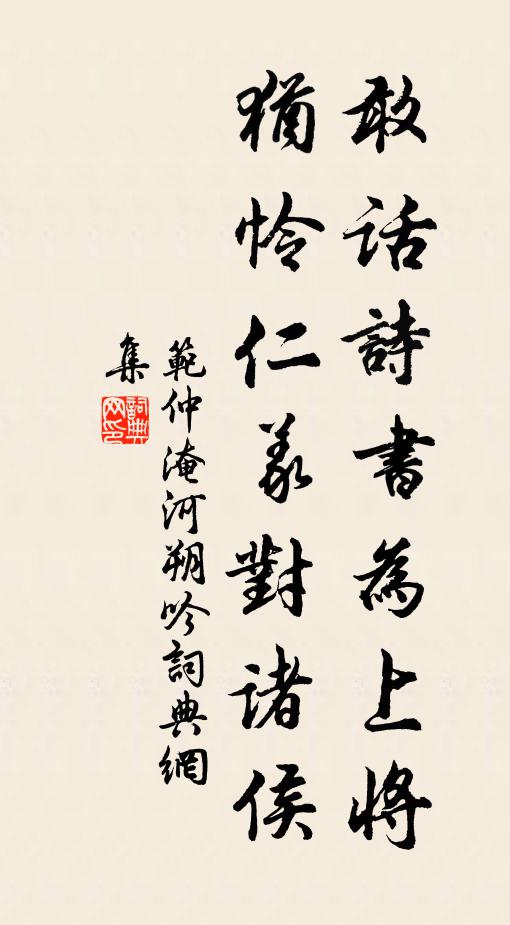 敢话詩書為上將
猶怜仁義對诸侯
範仲淹河朔吟詞典網
集
詞典网印